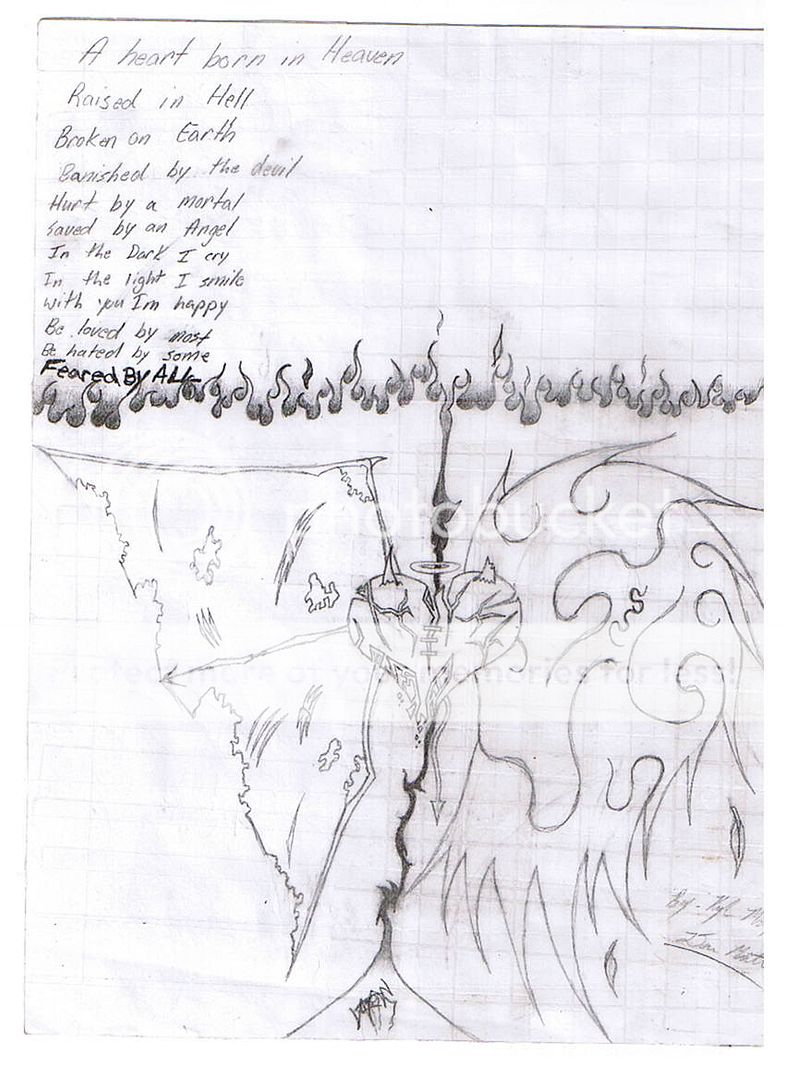 A heart born in Heaven
Raised in Hell
Broken on Earth
Banished by the devil
Hurt by a mortal
saved by an Angel
In the Dark I cry
In the light I smile
with you Im happy
Be loved by most
Be hated by some
Feared By ALL
photobucket
Protect more of your memories for less!
By - Kyle